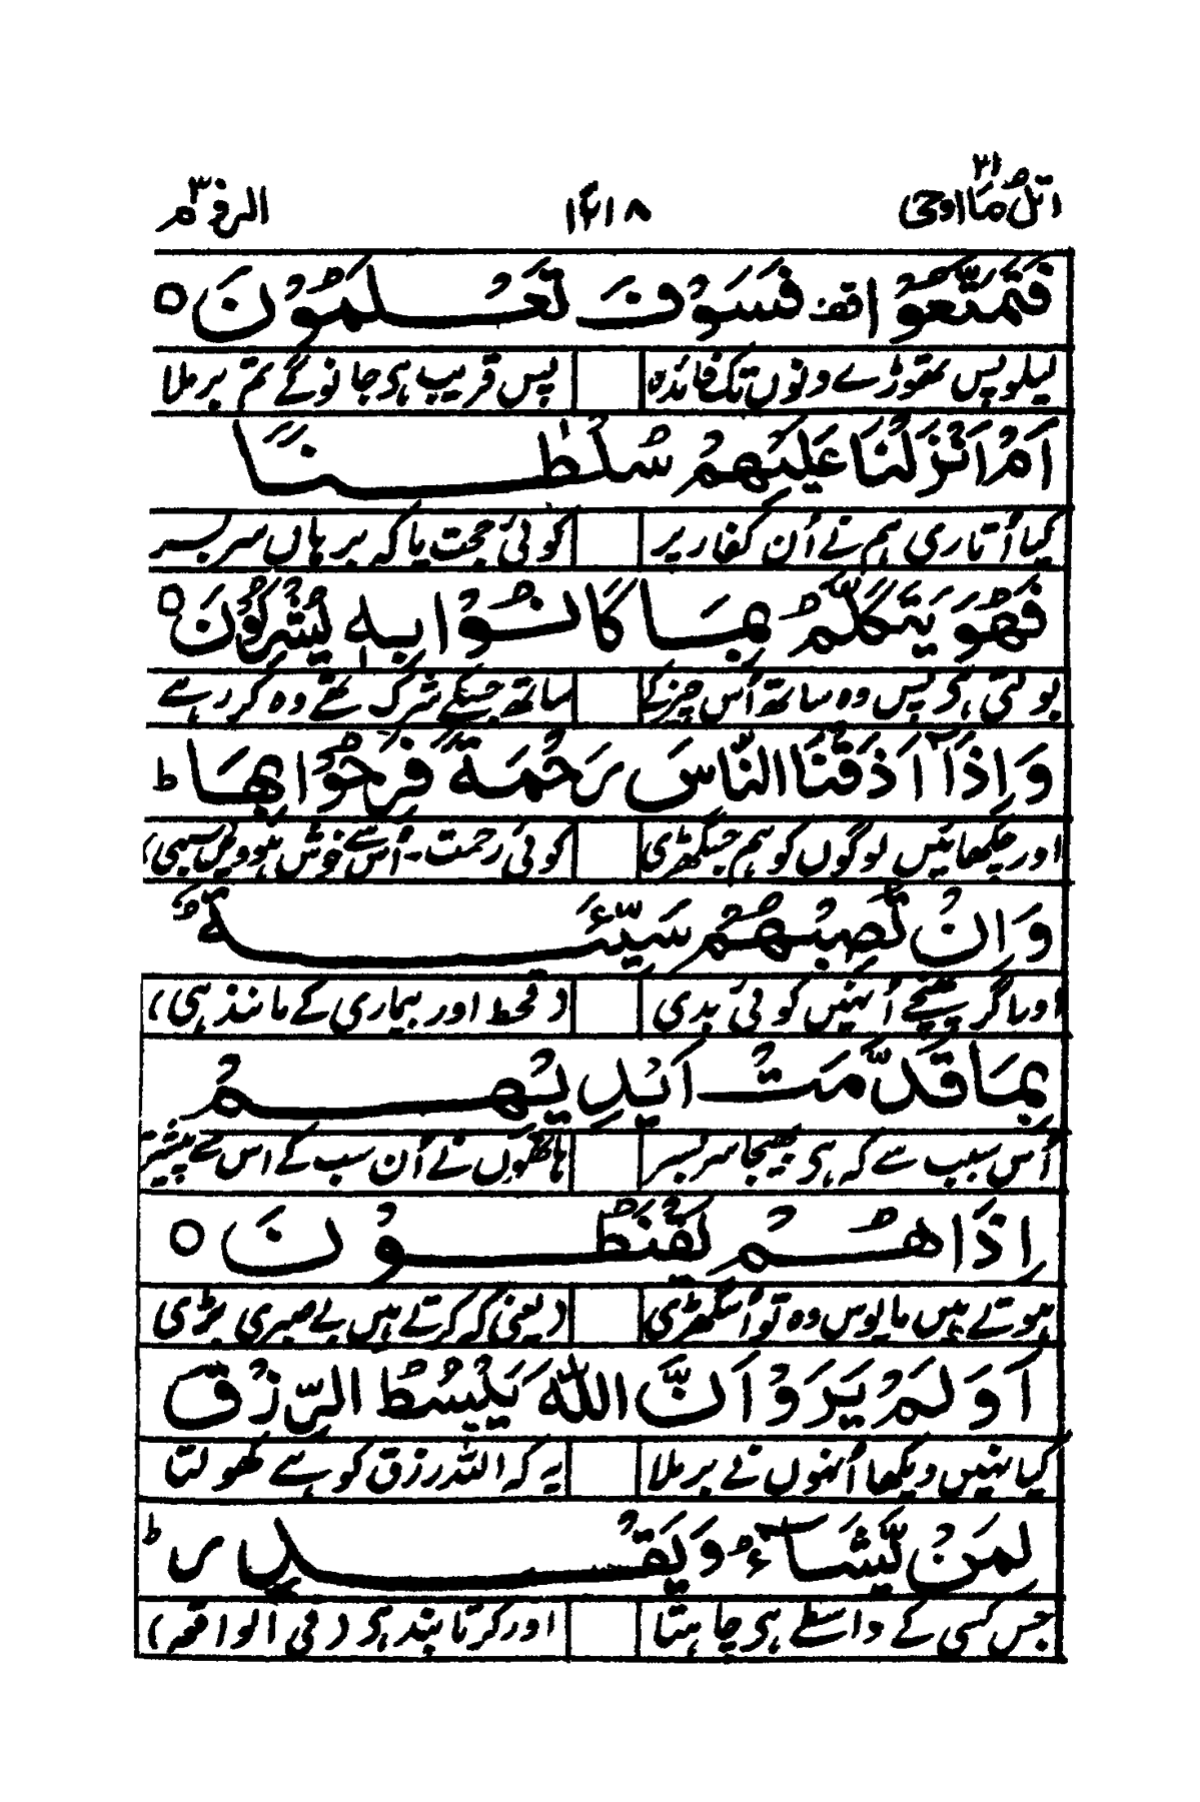 اتل ما اوحی ۲۱ ۱۴۱۸ الروم ۳۰
فَتَمَتَّعُوْا وقفہ فَسَوْفَ تَعْلَمُوْنَ ○
لیلو پس تھوڑے دنوں تک فائدہ پس قریب ہی جانو گے تم بر ملا
اَمْ اَنْزَلْنَا عَلَیْهِمْ سُلْطٰنًا
کیا اُتاری ہم نے اُن کفار پر کوئی حجت یا کہ برہاں سربسر
فَهُوَ یَتَكَلَّمُ بِمَا كَانُوْا بِهٖ یُشْرِكُوْنَ ○
بولتی ہی پس وہ ساتھ اُس چیز کے ساتھ جسکے شرک تھے وہ کر رہے
وَاِذَاۤ اَذَقْنَا النَّاسَ رَحْمَةً فَرِحُوْا بِهَا ط
اور چکھائیں لوگوں کو ہم جسگھڑی کوئی رحمت - اُس سے خوش ہوویں سبھی)
وَاِنْ تُصِبْهُمْ سَیِّئَةٌۢ
اور اگر پہنچے اُنہیں کوئی بدی (قحط اور بیماری کے مانند ہی)
بِمَا قَدَّمَتْ اَیْدِیْهِمْ
اُس سبب سے کہ ہی بھیجا سربسر ہاتھوں نے اُن سب کے اس سے پیشتر
اِذَا هُمْ یَقْنَطُوْنَ ○
ہوتے ہیں مایوس وہ تو اُسگھڑی (یعنی کہ کرتے ہیں بے صبری بڑی
اَوَلَمْ یَرَوْا اَنَّ اللّٰهَ یَبْسُطُ الرِّزْقَ
کیا نہیں دیکھا اُنہوں نے بر ملا یہ کہ اللہ رزق کو ہے کھولتا
لِمَنْ یَّشَآءُ وَیَقْدِرُ ط
جس کسی کے واسطے ہی چاہتا اور کرتا بند ہی (فی الواقعہ)